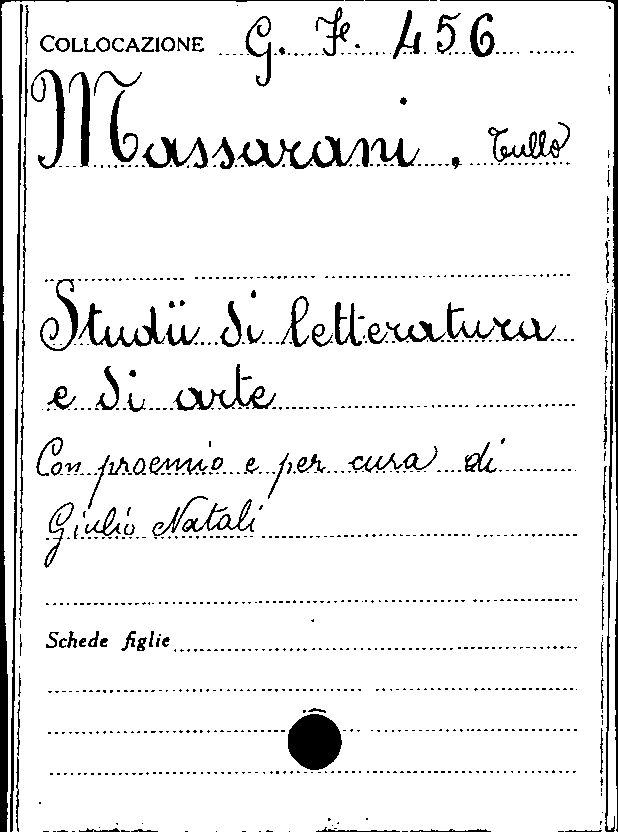 COLLOCAZIONE G. Fe. 456
Massarani. Tullo
Studii di letteratura
e di arte
Con proemio e per cura di
Giulio Natali
Schede figlie